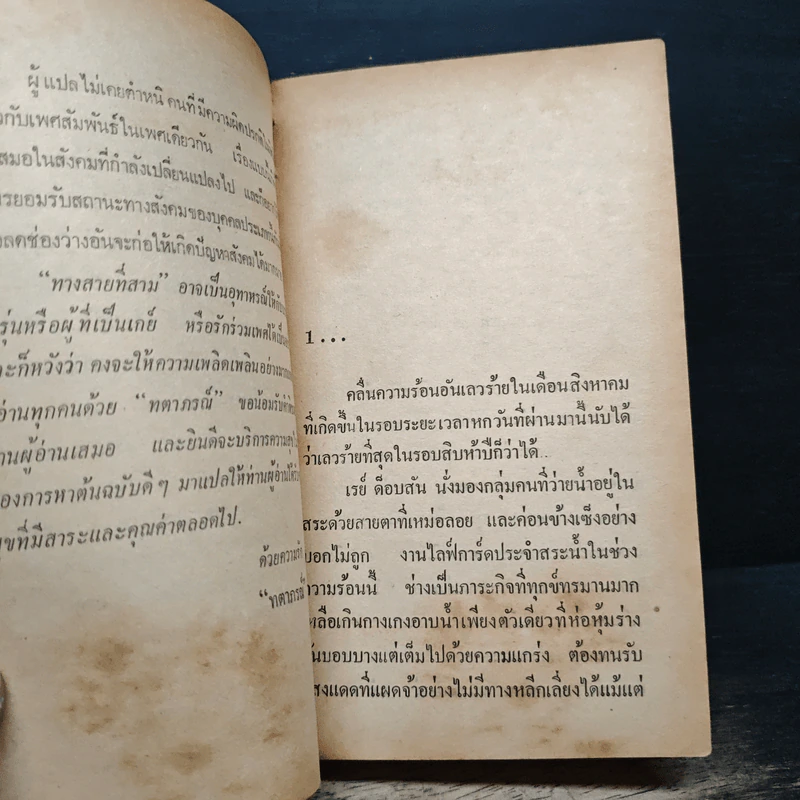 ผู้แปลไม่เคยตำหนิคนที่มีความผิดปรกติ
กับเพศสัมพันธ์ในเพศเดียวกัน เรื่องแบบนี้
สมอในสังคมที่กำลังเปลี่ยนแปลงไป
รยอมรับสถานะทางสังคมของบุคคลประเภท
ลดช่องว่างอันจะก่อให้เกิดปัญหาสังคมได้
“ทางสายที่สาม” อาจเป็นอุทาหรณ์ให้
รุ่นหรือผู้ที่เป็นเกย์ หรือรักร่วมเพศได้
ะก็หวังว่า คงจะให้ความเพลิดเพลินอย่าง
อ่านทุกคนด้วย “ทตาภรณ์” ขอน้อมรับ
านผู้อ่านเสมอ และยินดีจะบริการความ
องการหาต้นฉบับดีๆ มาแปลให้ท่านผู้อ่านได้
ขที่มีสาระและคุณค่าตลอดไป.
ด้วยความ
“ทตาภรณ์”
1...
คลื่นความร้อนอันเลวร้ายในเดือนสิงหาคม
ที่เกิดขึ้นในรอบระยะเวลาหกวันที่ผ่านมานี้นับได้
ว่าเลวร้ายที่สุดในรอบสิบห้าปีก็ว่าได้..
เรย์ ด็อบสัน นั่งมองกลุ่มคนที่ว่ายน้ำอยู่ใน
สระด้วยสายตาที่เหม่อลอย และค่อนข้างเซ็งอย่าง
บอกไม่ถูก งานไลฟ์การ์ดประจำสระน้ำในช่วง
ความร้อนนี้ ช่างเป็นภาระกิจที่ทุกข์ทรมานมาก
เหลือเกินกางเกงอาบน้ำเพียงตัวเดียวที่ห่อหุ้มร่าง
ันบอบบางแต่เต็มไปด้วยความแกร่ง ต้องทนรับ
สงแดดที่แผดจ้าอย่างไม่มีทางหลีกเลี่ยงได้แม้แต่